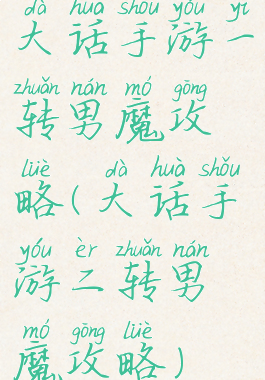 dà huà shǒu yóu yī
大话手游一
zhuǎn nán mó gōng
转男魔攻
lüè dà huà shǒu
略(大话手
yóu èr zhuǎn nán
游二转男
mó gōng lüè
魔攻略)